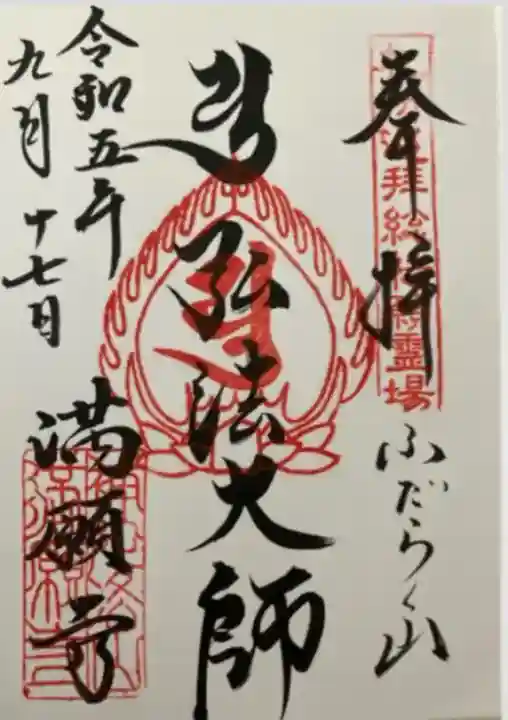 奉拝
ふだらく山
弘法大師
令和五年
九月十七日
満願寺
拝総
霊場